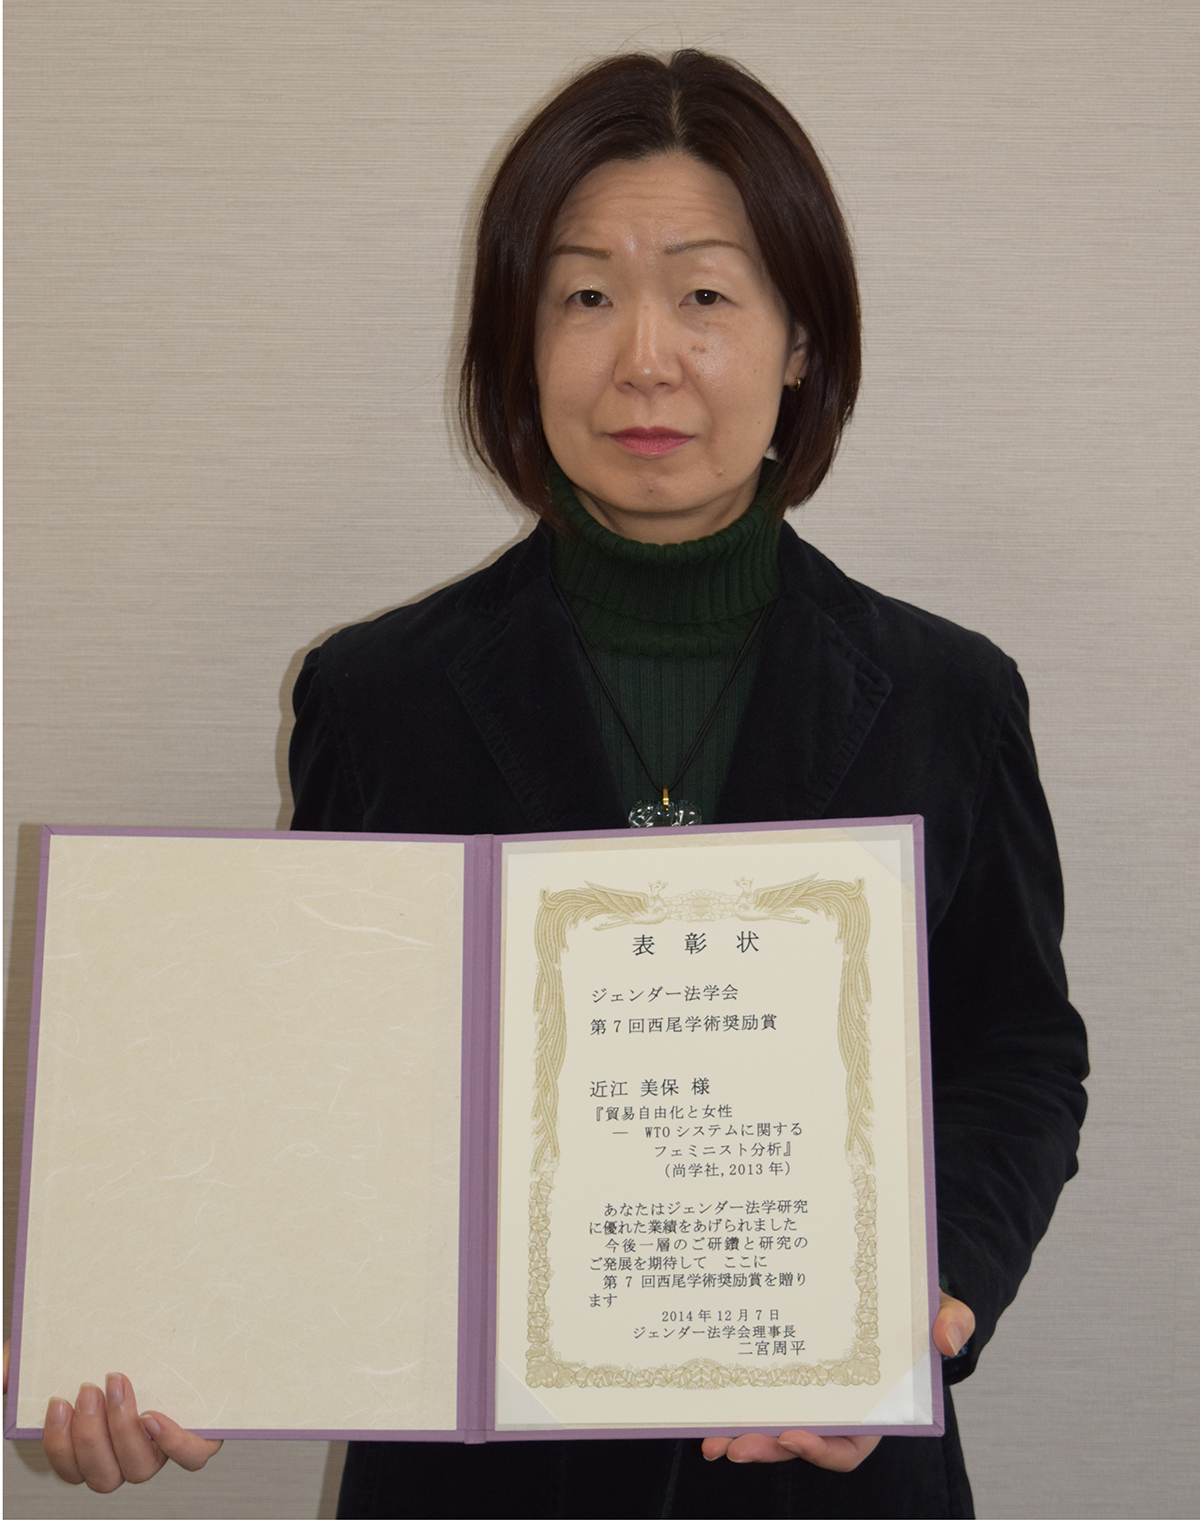 表 彰 状
ジェンダー法学会
第7回西尾学術奨励賞
近江 美保 様
『貿易自由化と女性
― WTOシステムに関する
フェミニスト分析』
(尚学社,2013年)
あなたはジェンダー法学研究
に優れた業績をあげられました
今後一層のご研鑽と研究の
ご発展を期待して ここに
第 7 回西尾学術奨励賞を贈り
ます
2014年12月7日
ジェンダー法学会理事長
二宮周平